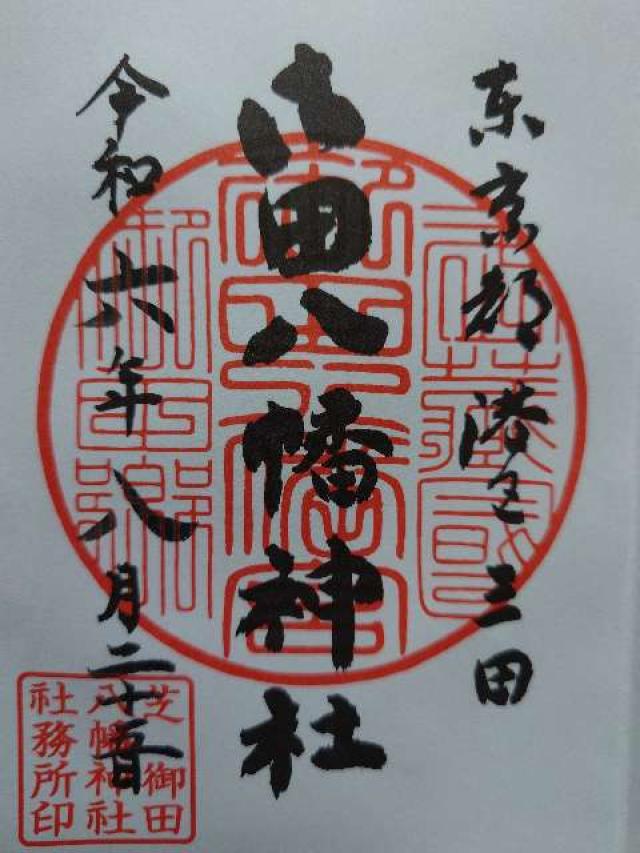 東京都港区三田
御田八幡神社
令和六年八月二十
芝御田
八幡神社
社務所印